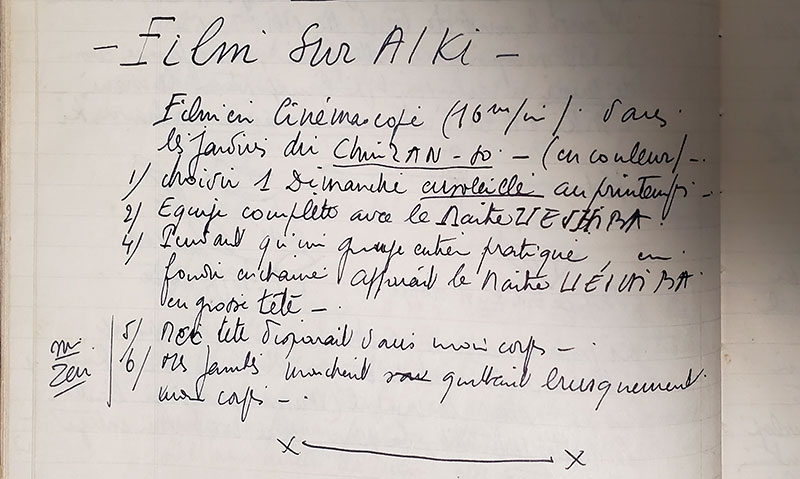 - Film sur AIKi -
Film en Cinémascope (16 m/m). dans
les Jardins du ChinZAN-so - (en couleur) -.
1) choisir 1 Dimanche ensoleillé au printemps -.
2) Equipe complète avec le Maitre UESHIBA.
4) Pendant qu'un groupe entier pratique, en
fondu enchainé apparait le Maitre UESHIBA
en grosse tête -.
5/ Ma tête disparait dans mon corps -.
Zen
6/ Mes jambes marchent quittant brusquement
mon corps -.
X X